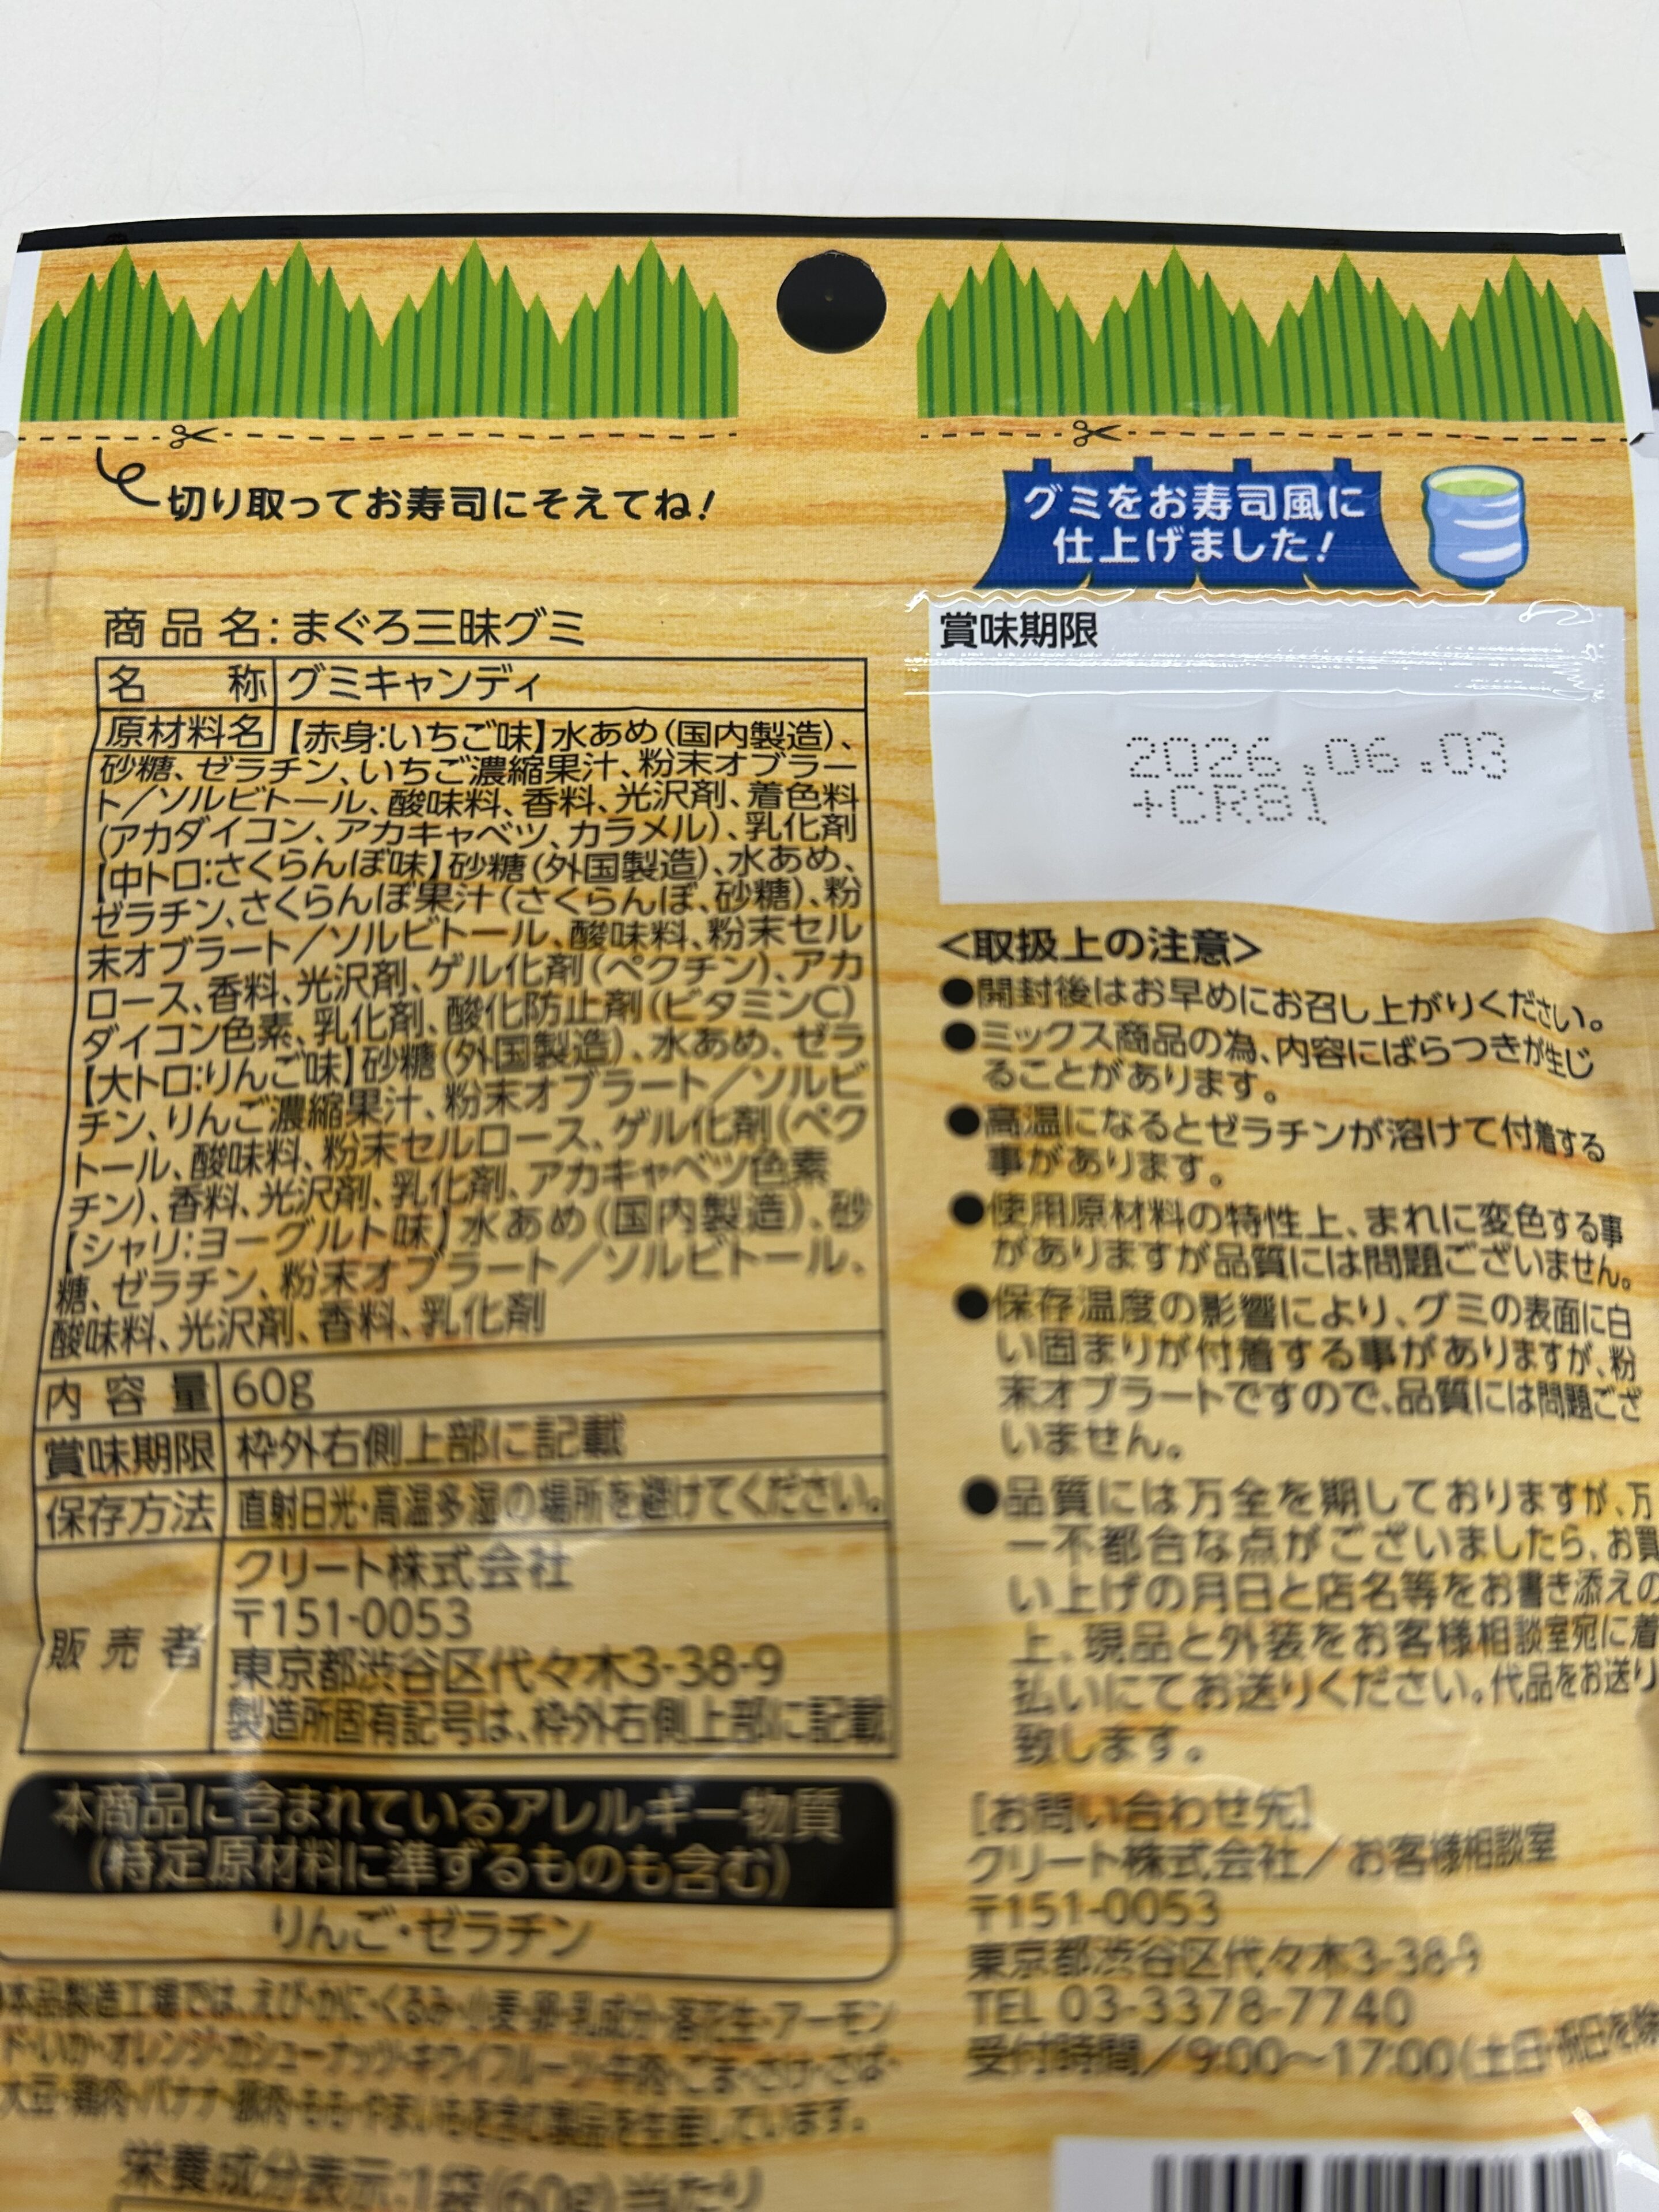 切り取ってお寿司にそえてね!
グミをお寿司風に
仕上げました!
商品名:まぐろ三昧グミ
名称 グミキャンディ
原材料名 【赤身:いちご味】水あめ(国内製造)、
砂糖、ゼラチン、いちご濃縮果汁、粉末オブラー
ト/ソルビトール、酸味料、香料、光沢剤、着色料
(アカダイコン、アカキャベツ、カラメル)、乳化剤
【中トロ:さくらんぼ味】砂糖(外国製造)、水あめ、
ゼラチン、さくらんぼ果汁(さくらんぼ、砂糖)、粉
末オブラート/ソルビトール、酸味料、粉末セル
ロース、香料、光沢剤、ゲル化剤(ペクチン)、アカ
ダイコン色素、乳化剤、酸化防止剤(ビタミンC)
【大トロ:りんご味】砂糖(外国製造)、水あめ、ゼラ
チン、りんご濃縮果汁、粉末オブラート/ソルビ
トール、酸味料、粉末セルロース、ゲル化剤(ペク
チン)、香料、光沢剤、乳化剤、アカキャベツ色素
【シャリ:ヨーグルト味】水あめ(国内製造)、砂
糖、ゼラチン、粉末オブラート/ソルビトール、
酸味料、光沢剤、香料、乳化剤
内容量 60g
賞味期限 枠外右側上部に記載
保存方法 直射日光・高温多湿の場所を避けてください。
販売者 クリート株式会社
〒151-0053
東京都渋谷区代々木3-38-9
製造所固有記号は、枠外右側上部に記載
本商品に含まれているアレルギー物質
(特定原材料に準ずるものも含む)
りんご・ゼラチン
本品製造工場では、えび・かに・くるみ・小麦・卵・乳成分・落花生・アーモン
ド・いか・オレンジ・カシューナッツ・キウイフルーツ・牛肉・ごま・さけ・さば・
大豆・鶏肉・バナナ・豚肉・もも・やまいもを含む製品を生産しています。
栄養成分表示:1袋(60g)当たり
賞味期限
2026.06.03
+CR81
<取扱上の注意>
●開封後はお早めにお召し上がりください。
●ミックス商品の為、内容にばらつきが生じ
ることがあります。
●高温になるとゼラチンが溶けて付着する
事があります。
●使用原材料の特性上、まれに変色する事
がありますが品質には問題ございません。
●保存温度の影響により、グミの表面に白
い固まりが付着する事がありますが、粉
末オブラートですので、品質には問題ござ
いません。
●品質には万全を期しておりますが、万
一不都合な点がございましたら、お買
い上げの月日と店名等をお書き添えの
上、現品と外装をお客様相談室宛に着
払いにてお送りください。代品をお送り
致します。
[お問い合わせ先]
クリート株式会社/お客様相談室
〒151-0053
東京都渋谷区代々木3-38-9
TEL 03-3378-7740
受付時間/9:00~17:00(土日・祝日を除